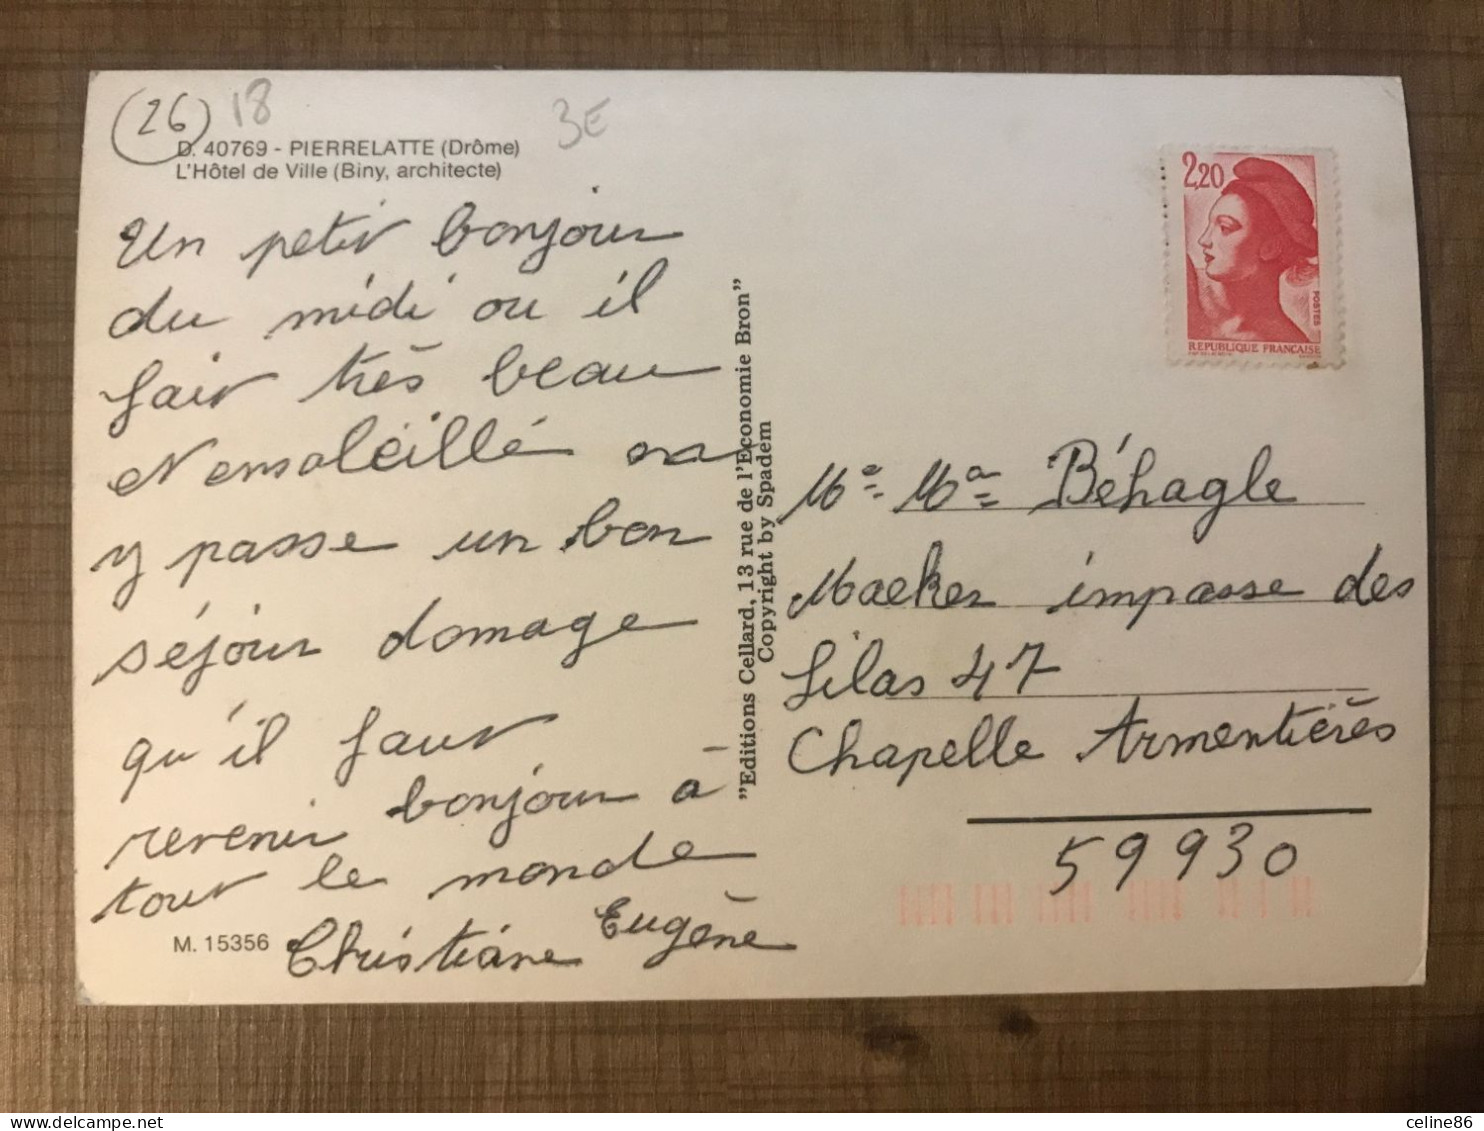 (26) 18
3E
D. 40769 - PIERRELATTE (Drôme)
L'Hôtel de Ville (Biny, architecte)
Un petit bonjour
du midi ou il
fait très beau
et ensoleillé on a
y passe un bon
séjour domage
qu'il faut
revenir bonjour à
tout le monde
Christiane Eugène
M. 15356
"Editions Cellard, 13 rue de l'Economie Bron"
Copyright by Spadem
2,20
POSTES
REPUBLIQUE FRANÇAISE
Me Ma Béhagle
Maeker impasse des
Lilas 47
Chapelle Armentières
59930
delcampe.net
celine86